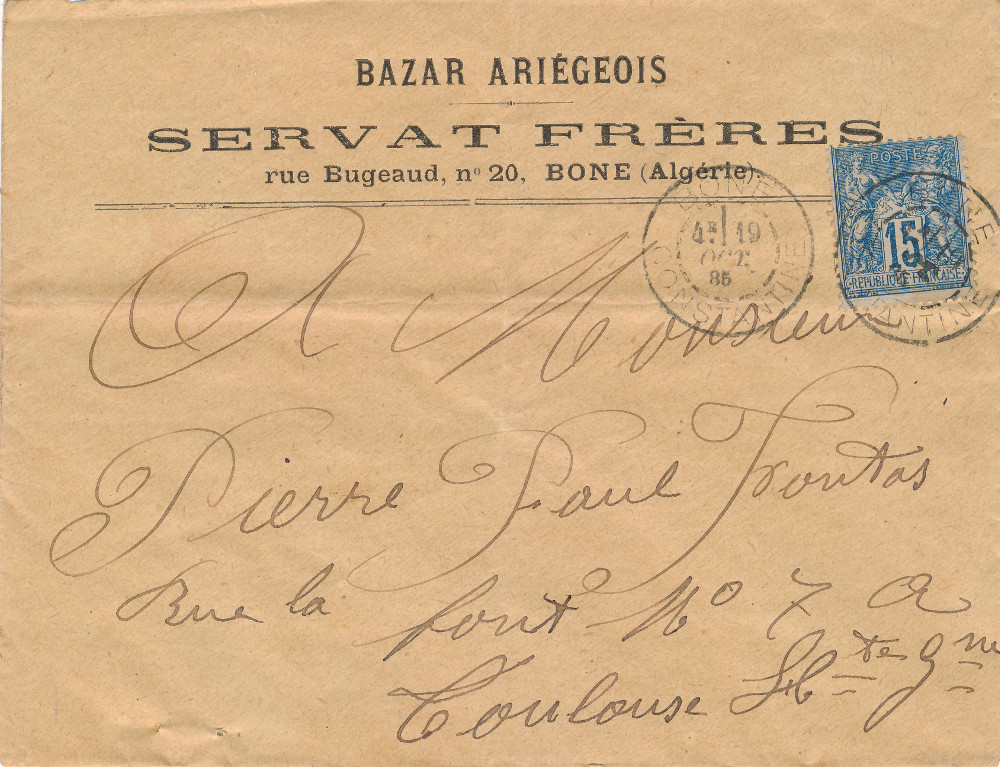 BAZAR ARIÉGEOIS
SERVAT FRÈRES
rue Bugeaud, nº 20, BONE (Algérie).
POSTE
15
REPUBLIQUE FRANÇAISE
BONE
4E 19
OCT.
85
CONSTANTINE
A Monsieur
Pierre Paul Fontas
Rue la font Nº 7 A
Toulouse Hte gne